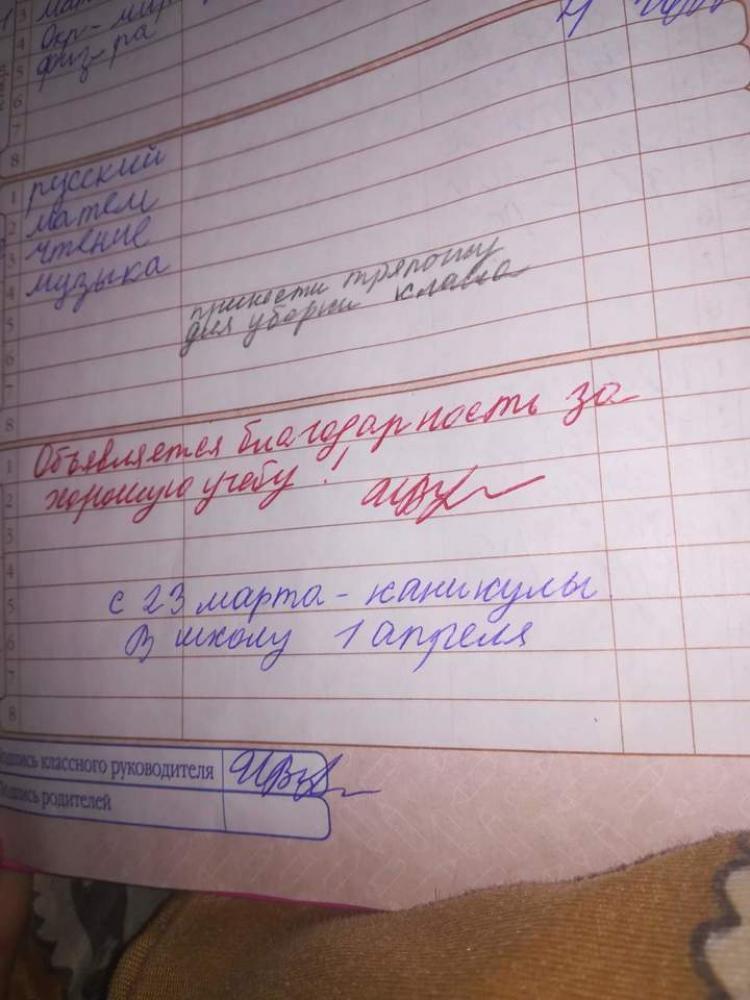 3
4 Окр-мир
5 физ-ра
6
7
8
1 русский
2 матем
3 чтение
4 музыка
принести тряпочку
5 для уборки класса
6
7
8
1 Объявляется благодарность за
2 хорошую учебу!
3
4
5 с 23 марта - каникулы
6 В школу 1 апреля
7
8
подпись классного руководителя
подпись родителей